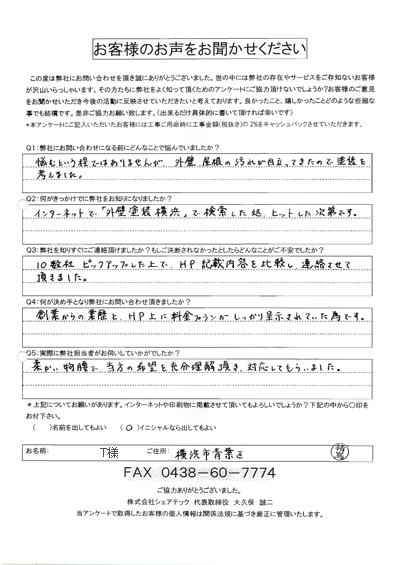 お客様のお声をお聞かせください
この度は弊社にお問い合わせを頂き誠にありがとうございました。世の中には弊社の存在やサービスをご存知ないお客様
が沢山いらっしゃいます。その方たちに弊社をよく知って頂くためのアンケートにご協力頂けないでしょうか?お客様のご意見
をお聞かせいただき今後の活動に反映させていただきたいと考えております。良かったこと、嬉しかったことどのような些細な
事でも結構です。是非ご協力お願い致します。(出来るだけ具体的に書いて頂ければ幸いです)
*本アンケートにご記入いただいたお客様には工事ご用命時に工事金額(税抜き)の 2%をキャッシュバックさせていただきます。
Q1:弊社にお問い合わせになる前にどんなことで悩んでいましたか?
悩むという程ではありませんが、外壁、屋根の汚れが目立ってきたので塗装を
考えました。
Q2:何がきっかけでに弊社をお知りになりましたか?
インターネットで「外壁塗装横浜」で検索した処、ヒットした次第です。
Q3:弊社を知りすぐにご連絡頂けましたか?もしご決断されなかったとしたらどんなことがご不安でしたか?
10数社 ピックアップした上で、HP記載内容を比較し、連絡させて
頂きました。
Q4:何が決め手となり弊社にお問い合わせ頂きましたか?
創業からの業歴と、HP上に料金プランがしっかり呈示されていた為です。
Q5:実際に弊社担当者がお伺いしていかがでしたか?
柔かい物腰で、当方の希望を充分理解頂き、対応してもらいました。
*上記についてお願いがあります。インターネットや印刷物に掲載させて頂いてもよろしいでしょうか?下記の中から〇印を
お付下さい。
( )名前を出してもよい (〇)イニシャルなら出してもよい
お名前: T様 ご住所: 横浜市青葉区
FAX 0438-60-7774
ご協力ありがとうございました。
株式会社シェアテック 代表取締役 大久保 誠二
当アンケートで取得したお客様の個人情報は関係法規に基づき厳正に管理いたします。